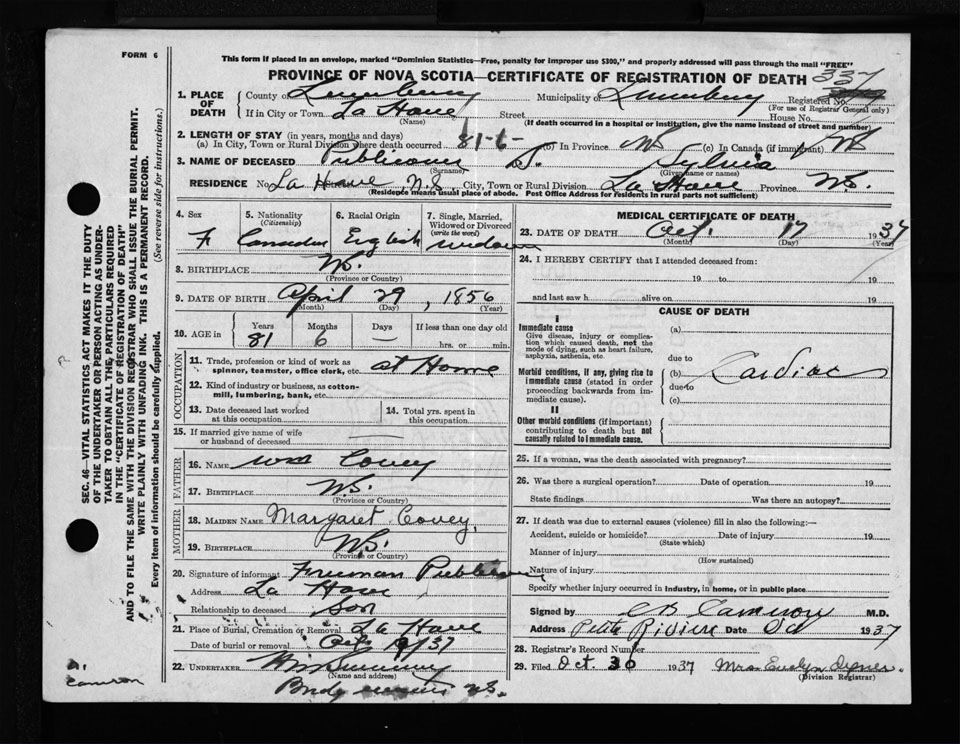 FORM 6
This form if placed in an envelope, marked "Dominion Statistics—Free, penalty for improper use $300," and properly addressed will pass through the mail "FREE"
PROVINCE OF NOVA SCOTIA—CERTIFICATE OF REGISTRATION OF DEATH 337
1. PLACE OF DEATH County of Lunenburg Municipality of Lunenburg Registered No.
(For use of Registrar General only)
If in City or Town La Have Street House No.
(Name) (If death occurred in a hospital or institution, give the name instead of street and number)
2. LENGTH OF STAY (in years, months and days)
(a) In City, Town or Rural Division where death occurred 81-6- (b) In Province NS (c) In Canada (if immigrant) NS
3. NAME OF DECEASED Publicover Sylvia
(Surname) (Given name or names)
RESIDENCE No La Have, N.S. City, Town or Rural Division La Have Province NS.
(Residence means usual place of abode. Post Office Address for residents in rural parts not sufficient)
4. Sex 5. Nationality (Citizenship) 6. Racial Origin 7. Single, Married, Widowed or Divorced (write the word)
F Canadian English widow
8. BIRTHPLACE NS.
(Province or Country)
9. DATE OF BIRTH April 29, 1856
(Month) (Day) (Year)
10. AGE in Years Months Days If less than one day old
81 6 — hrs. or min.
OCCUPATION
11. Trade, profession or kind of work as spinner, teamster, office clerk, etc. at Home
12. Kind of industry or business, as cotton-mill, lumbering, bank, etc.
13. Date deceased last worked at this occupation 14. Total yrs. spent in this occupation
15. If married give name of wife or husband of deceased
FATHER
16. NAME Wm Covey
17. BIRTHPLACE NS.
(Province or Country)
MOTHER
18. MAIDEN NAME Margaret Covey,
19. BIRTHPLACE NS.
(Province or Country)
20. Signature of informant Freeman Publicover
Address La Have
Relationship to deceased Son
21. Place of Burial, Cremation or Removal La Have
Date of burial or removal Oct 19/37
22. UNDERTAKER
(Name and address)
MEDICAL CERTIFICATE OF DEATH
23. DATE OF DEATH Oct. 17 1937
(Month) (Day) (Year)
24. I HEREBY CERTIFY that I attended deceased from:
19 to 19
and last saw h alive on 19
CAUSE OF DEATH
I
Immediate cause (a)
Give disease, injury or complication which caused death, not the mode of dying, such as heart failure, asphyxia, asthenia, etc.
due to
Morbid conditions, if any, giving rise to immediate cause (stated in order proceeding backwards from immediate cause).
(b) Cardiac
due to
(c)
II
Other morbid conditions (if important) contributing to death but not causally related to immediate cause.
25. If a woman, was the death associated with pregnancy?
26. Was there a surgical operation? Date of operation 19
State findings Was there an autopsy?
27. If death was due to external causes (violence) fill in also the following:—
Accident, suicide or homicide? Date of injury 19
(State which)
Manner of injury
(How sustained)
Nature of injury
Specify whether injury occurred in industry, in home, or in public place
Signed by CB Cameron M.D.
Address Petite Riviere Date Oct 1937
28. Registrar's Record Number
29. Filed Oct. 30 1937 Mrs Evelyn
(Division Registrar)
SEC. 46—VITAL STATISTICS ACT MAKES IT THE DUTY
OF THE UNDERTAKER OR PERSON ACTING AS UNDER-
TAKER TO OBTAIN ALL THE PARTICULARS REQUIRED
IN THE "CERTIFICATE OF REGISTRATION OF DEATH"
AND TO FILE THE SAME WITH THE DIVISION REGISTRAR WHO SHALL ISSUE THE BURIAL PERMIT.
WRITE PLAINLY WITH UNFADING INK. THIS IS A PERMANENT RECORD.
Every item of information should be carefully supplied. (See reverse side for instructions.)
Cameron